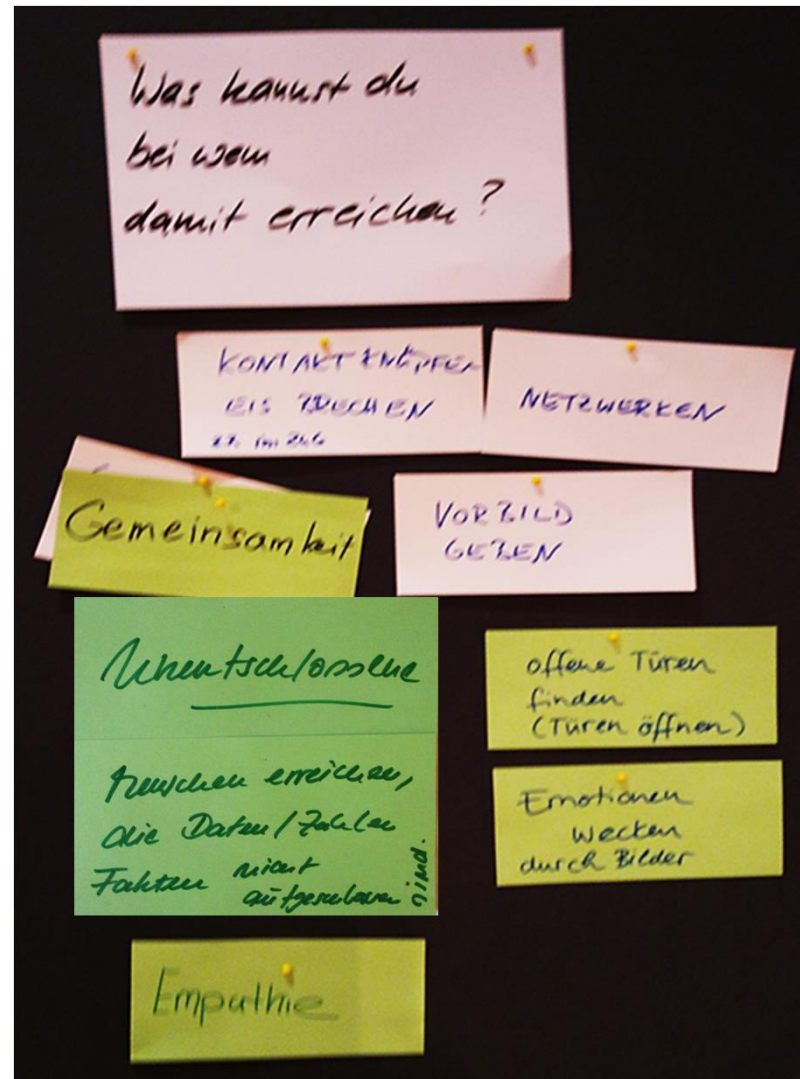 Was kannst du
bei wem
damit erreichen?
KONTAKT KNÜPFEN
EIS BRECHEN
NETZWERKEN
Gemeinsamkeit
VORBILD
GEBEN
Unentschlossene
Menschen erreichen,
die Daten/Zahlen
Fakten nicht
aufgeschlossen sind.
offene Türen
finden
(Türen öffnen)
Emotionen
wecken
durch Bilder
Empathie